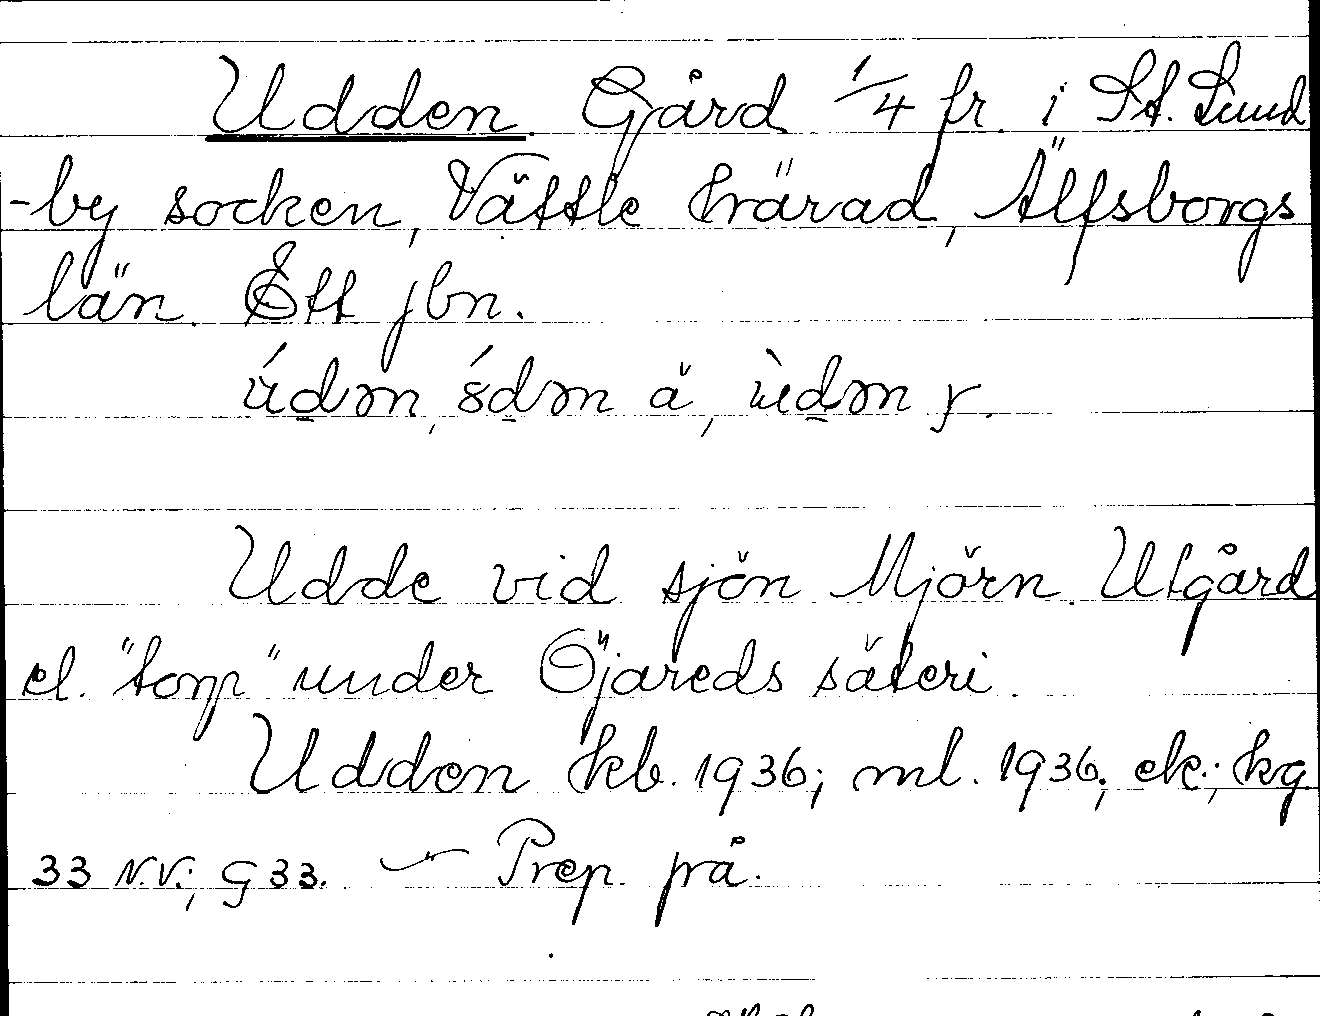 Udden. Gård 1/4 fr. i St. Lund
-by socken, Vättle härad, Älfsborgs
län. Ett jbn.
Udde vid sjön Mjörn. Utgård
el. "torp" under Öjareds säteri.
Udden kb. 1936; ml. 1936; ek.; kg.
33 N.V.; G 33. — Prep. på.